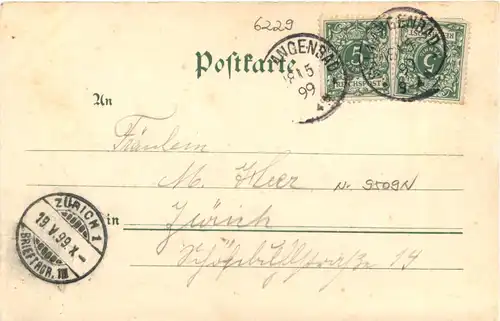 6229
Postkarte
5
REICHSPOST
LANGENSAL
18 5
99
An
Fräulein
M. Heer
Nr. 9509N
in Zürich
14
ZÜRICH 1
19. V. 99. X-
BRIEFTRGR. III